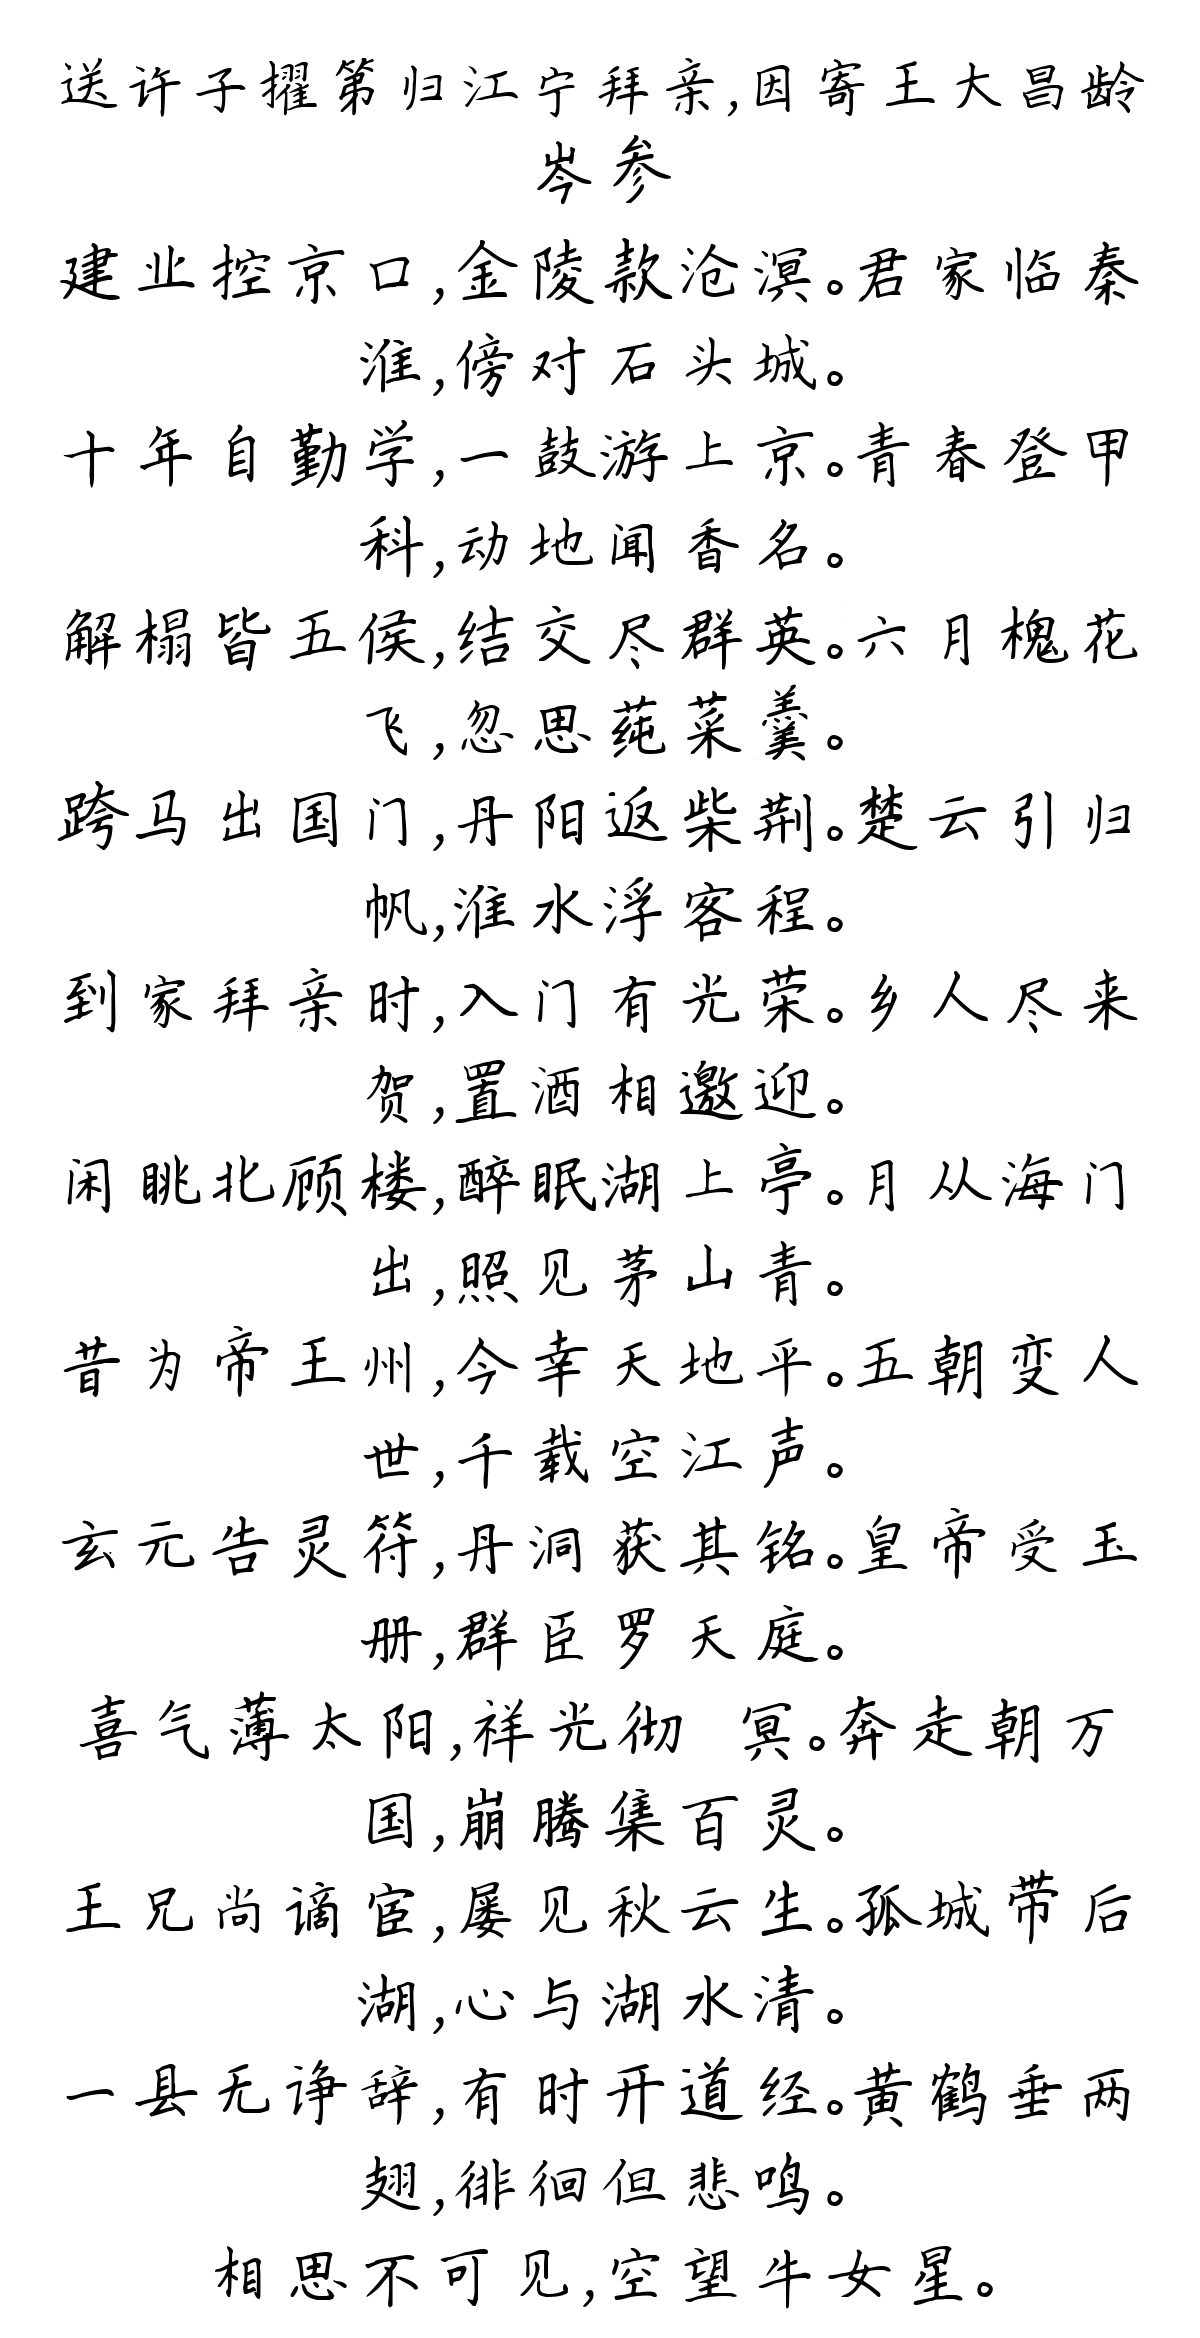 送许子擢第归江宁拜亲,因寄王大昌龄
岑参
建业控京口,金陵款沧溟。君家临秦
淮,傍对石头城。
十年自勤学,一鼓游上京。青春登甲
科,动地闻香名。
解榻皆五侯,结交尽群英。六月槐花
飞,忽思莼菜羹。
跨马出国门,丹阳返柴荆。楚云引归
帆,淮水浮客程。
到家拜亲时,入门有光荣。乡人尽来
贺,置酒相邀迎。
闲眺北顾楼,醉眠湖上亭。月从海门
出,照见茅山青。
昔为帝王州,今幸天地平。五朝变人
世,千载空江声。
玄元告灵符,丹洞获其铭。皇帝受玉
册,群臣罗天庭。
喜气薄太阳,祥光彻 冥。奔走朝万
国,崩腾集百灵。
王兄尚谪宦,屡见秋云生。孤城带后
湖,心与湖水清。
一县无诤辞,有时开道经。黄鹤垂两
翅,徘徊但悲鸣。
相思不可见,空望牛女星。